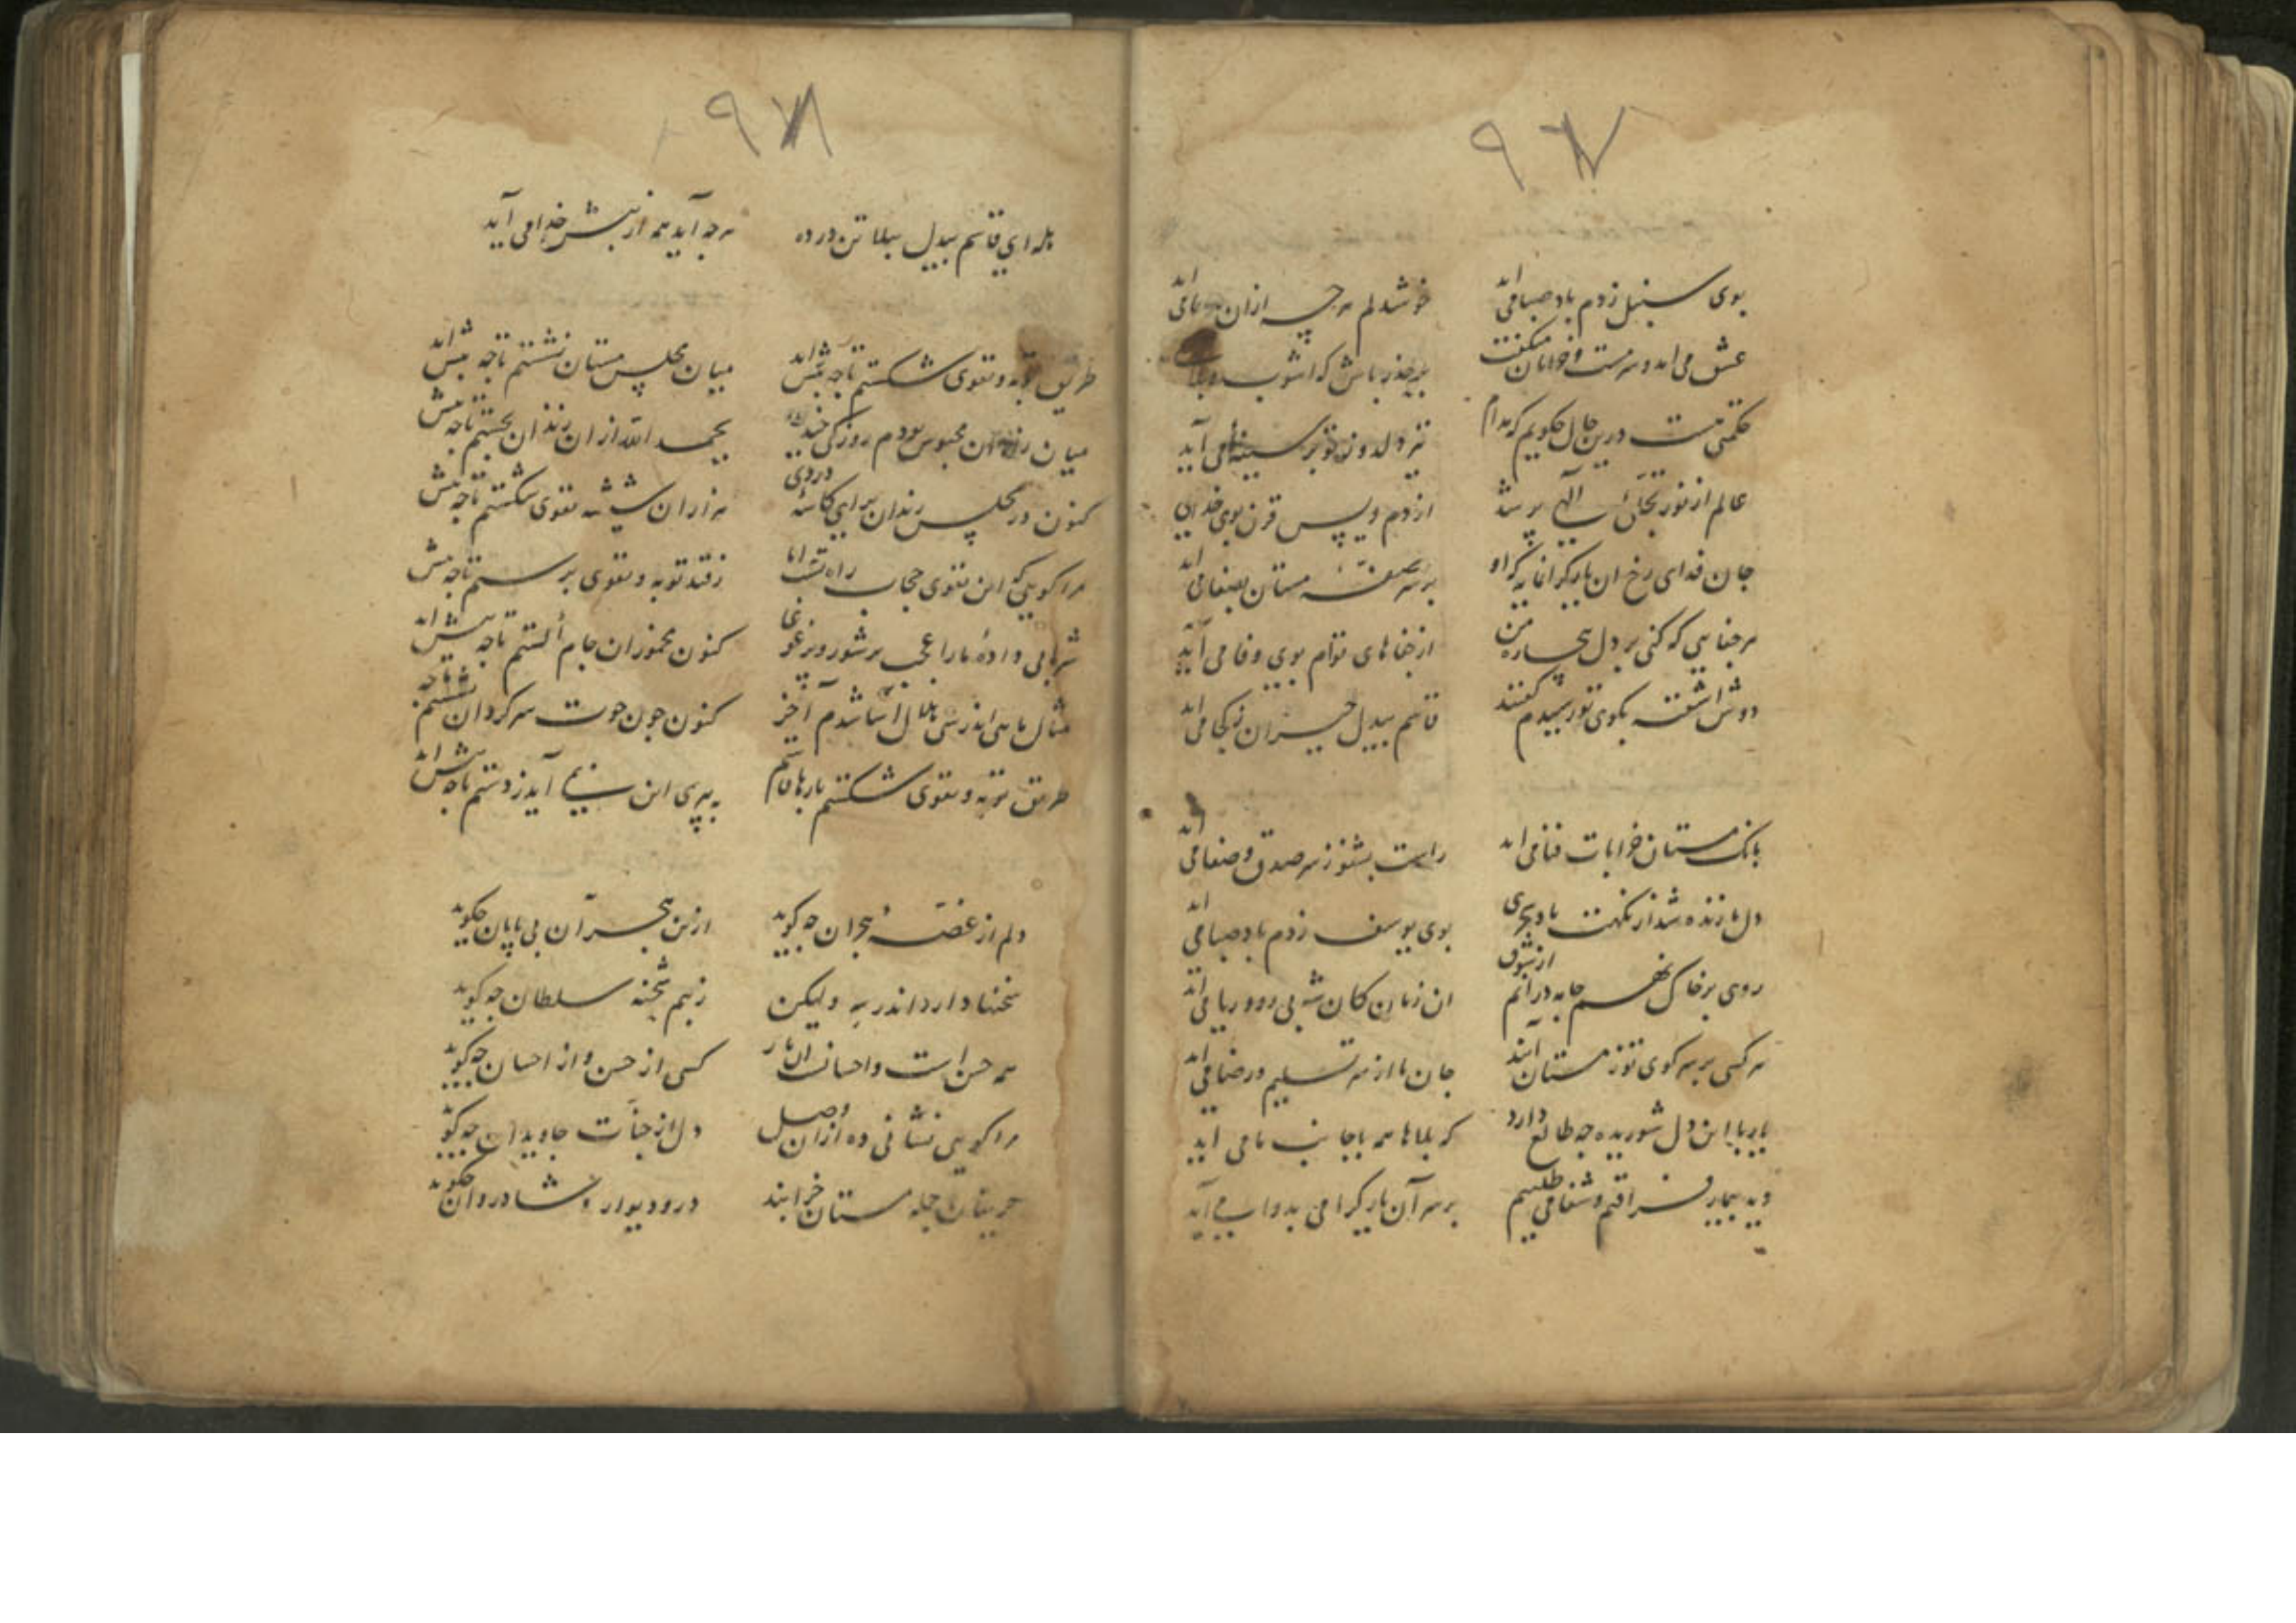 ۹۷
بوی سنبل زدم باد صبا می اید خوشدلم هرچه ازان ما می اید
عشق می اید و سرمست و خرامان میکفت بر حذر باش که اشوب و بلا
حکمتی هست درین حال چکویم که مدام تیر دلدوز تو بر سینه ما می آید
عالم از نور تجلی الهی پر شد از دم ویس قرن بوی خدا می
جان فدای رخ ان یار کرانمایه که او بر سر صفه مستان بصفا می اید
هر جفایی که کنی بر دل بیچاره من از جفاهای توام بوی وفا می آید
دوش اشفته بکوی تو رسیدم کفتند قاسم بیدل حیران ز کجا می اید
بانک مستان خرابات فنا می اید راست بشنو ز سر صدق و صفا می اید
دل ما زنده شد از نکهت باد سحری بوی یوسف ز دم باد صبا می اید
روی بر خاک نهم جامه درانم از شوق ان زمان کان شه بی روو ریا می اید
هر کسی بر سر کوی تو ز مستان آیند جان ما از سر تسلیم و رضا می اید
یارب این دل شوریده چه طالع دارد که بلاها همه با جانب ما می اید
دیه بیمار فراقیم و شفا می طلبیم بر سر آن یار کرامی بدوا می آید
۹۷۸
بله ای قاسم بیدل ببلا تن در ده هرچه آید همه از پیش خدا می آید
طریق توبه و تقوی شکستم تا چه پیش اید میان مجلس مستان نشستم تا چه پیش اید
میان زندان محبوس بودم روزکی چند بحمد الله از ان زندان بجستم تا چه پیش
کنون در مجلس رندان برای کاسه دردی هزاران شیشه تقوی شکستم تا چه پیش
مرا کویی که این تقوی حجاب راه تست اما ز قید توبه و تقوی برستم تا چه پیش
شرابی دادهٔ ما را عجب پر شور و پر غوغا کنون مخموران جام الستم تا چه پیش اید
مثال ماهی اندر آشنا شدم آخر کنون چون حوت سرکردان بشستم تا چه
طریق توبه و تقوی شکستم بارها قاسم به پیری این نیز می آید ز دستم تا چه پیش اید
دلم از غصه هجران چه کوید ازین بحر آن بی پایان چکوید
سخنها دارد اندر سر ولیکن ز بیم شحنه سلطان چه کوید
همه حسن است و احسان ان یار کسی از حسن و از احسان چه کوید
مرا کویی نشانی ده از ان وصل دل از جنات جاویدان چه کوید
حریفان جمله مستان خرابند در و دیوار و شادروان چکوید